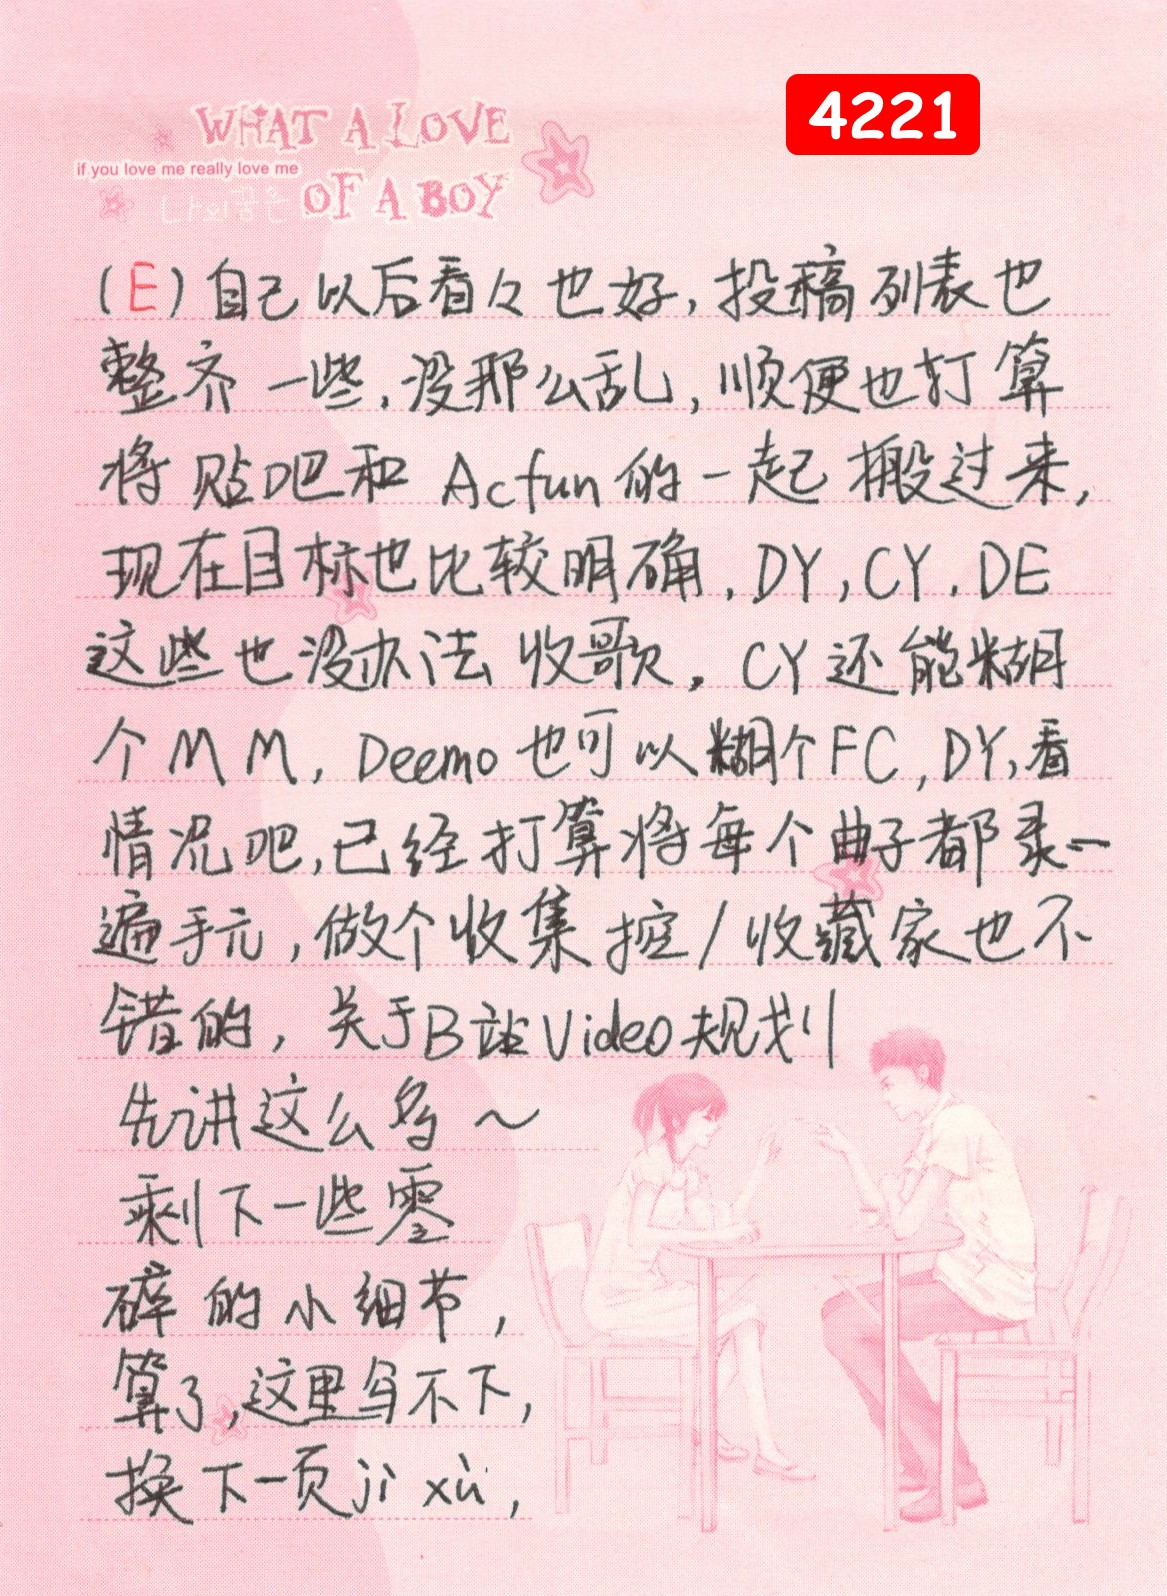 4221
WHAT A LOVE
if you love me really love me
OF A BOY
(E)自己以后看々也好,投稿列表也
整齐一些,没那么乱,顺便也打算
将贴吧和Acfun的一起搬过来,
现在目标也比较明确,DY,CY,DE
这些也没办法收歌。CY还能糊
个MM,Deemo也可以糊个FC,DY,看
情况吧,已经打算将每个曲子都录一
遍手元,做个收集控/收藏家也不
错的,关于B站Video规划
先讲这么多~
剩下一些零
碎的小细节,
算了,这里写不下,
换下一页jì xù,